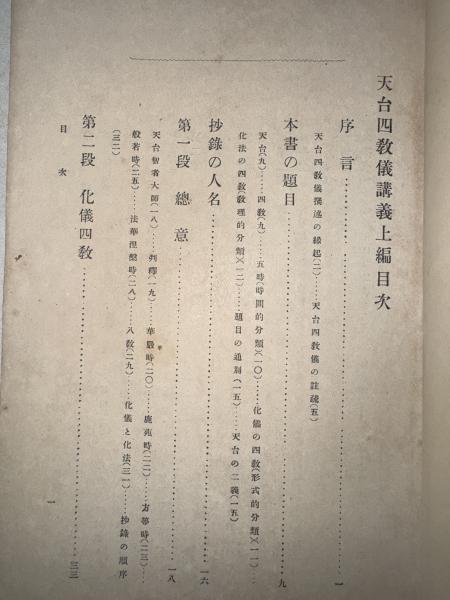 天台四教儀講義上編目次
序言……………………一
天台四教儀撰述の縁起(二)……天台四教儀の註疏(五)
本書の題目……………………九
天台(九)……四教(九)……五時(時間的分類)(一〇)……化儀の四教(形式的分類)(一一)……
化法の四教(教理的分類)(一二)……題目の通別(一五)……天台の二義(一五)
抄錄の人名……………………一六
第一段 總意……………………一八
天台智者大師(一八)……判釋(一九)……華嚴時(二〇)……鹿苑時(二二)……方等時(二三)……
般若時(二五)……法華涅槃時(二八)……八教(二九)……化儀と化法(三一)……抄錄の順序
(三二)
第二段 化儀四教……………………三三
目次
一